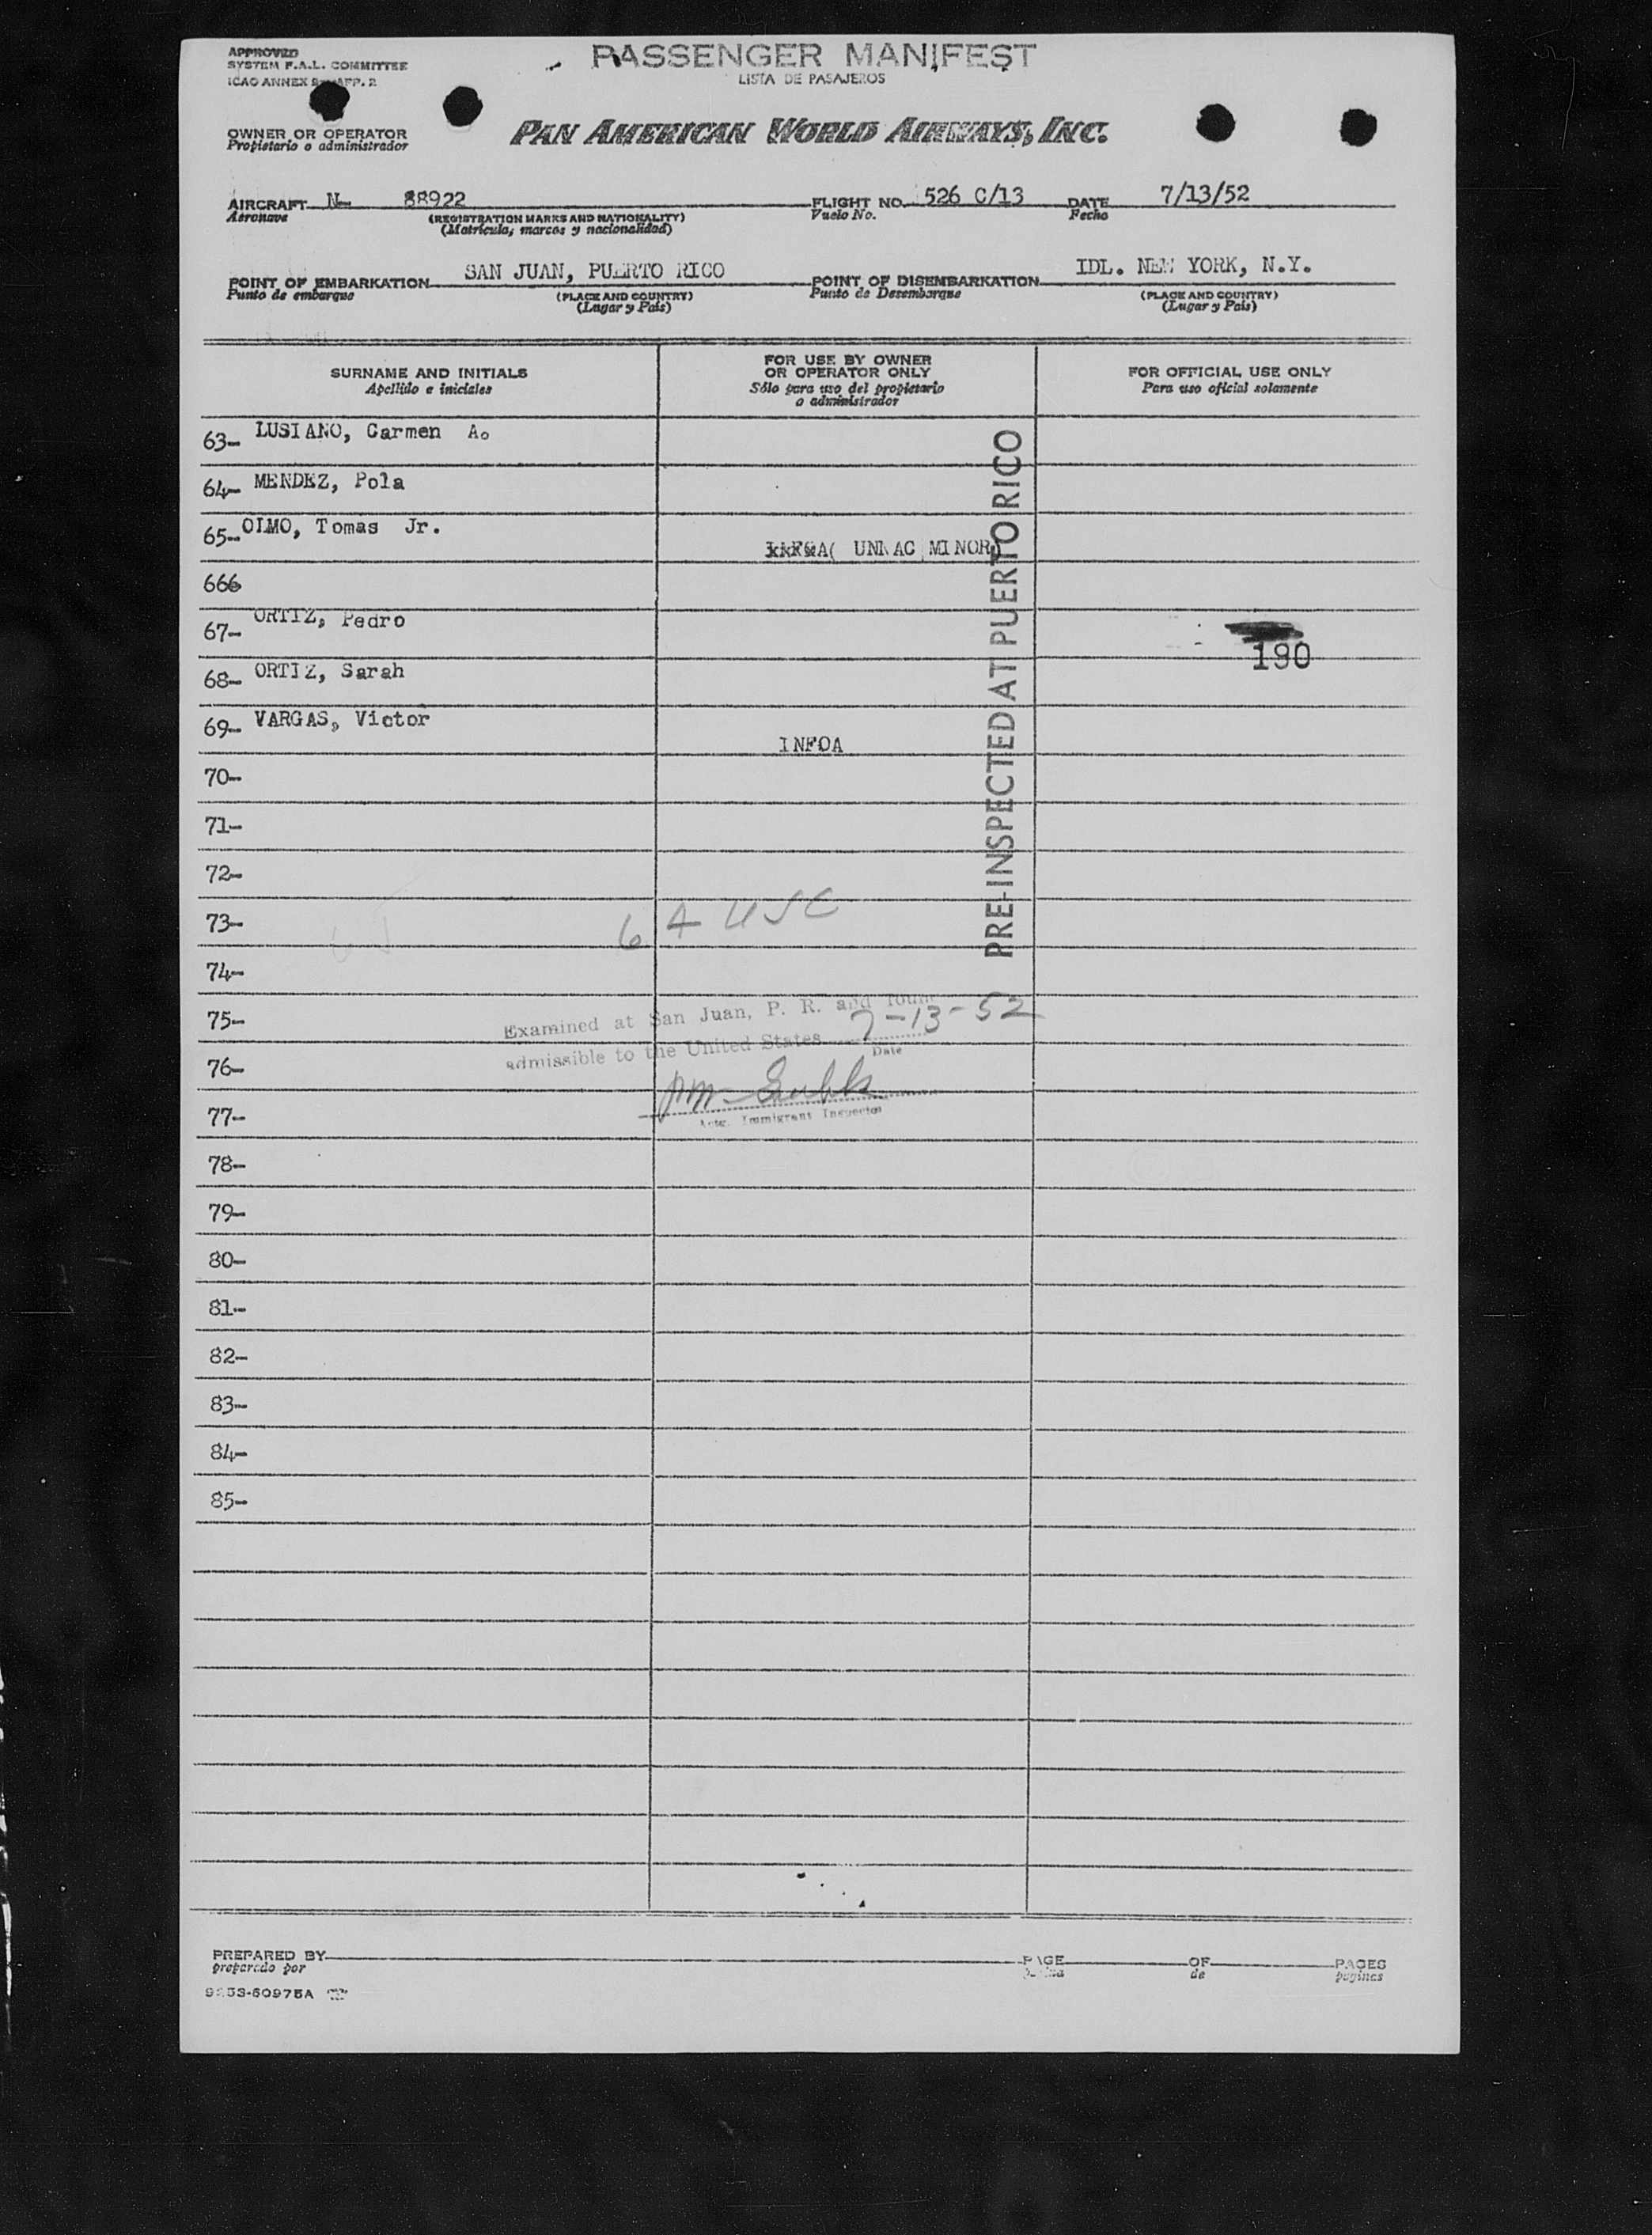 APPROVED
SYSTEM F.A.L. COMMITTEE
ICAO ANNEX APP. 2
PASSENGER MANIFEST
LISTA DE PASAJEROS
OWNER OR OPERATOR
Propietario o administrador
PAN AMERICAN WORLD AIRWAYS, INC.
AIRCRAFT N- 88922 FLIGHT NO. 526 C/13 DATE 7/13/52
Aeronave (REGISTRATION MARKS AND NATIONALITY) Vuelo No. Fecha
(Matricula, marcas y nacionalidad)
POINT OF EMBARKATION SAN JUAN, PUERTO RICO POINT OF DISEMBARKATION IDL. NEW YORK, N.Y.
Punto de embarque (PLACE AND COUNTRY) Punto de Desembarque (PLACE AND COUNTRY)
(Lugar y País) (Lugar y País)
SURNAME AND INITIALS
Apellido e iniciales
FOR USE BY OWNER
OR OPERATOR ONLY
Sólo para uso del propietario
o administrador
FOR OFFICIAL USE ONLY
Para uso oficial solamente
63- LUSIANO, Carmen A.
64- MENDEZ, Pola
65- OLMO, Tomas Jr.
( UNNAC MINOR)
666
67- ORTIZ, Pedro
190
68- ORTIZ, Sarah
69- VARGAS, Victor
INFOA
PRE-INSPECTED AT PUERTO RICO
70-
71-
72-
73-
64 USC
74-
75-
Examined at San Juan, P. R. and found
admissible to the United States 7-13-52
Date
76-
77-
Actg. Immigrant Inspector
78-
79-
80-
81-
82-
83-
84-
85-
PREPARED BY PAGE OF PAGES
preparado por de paginas